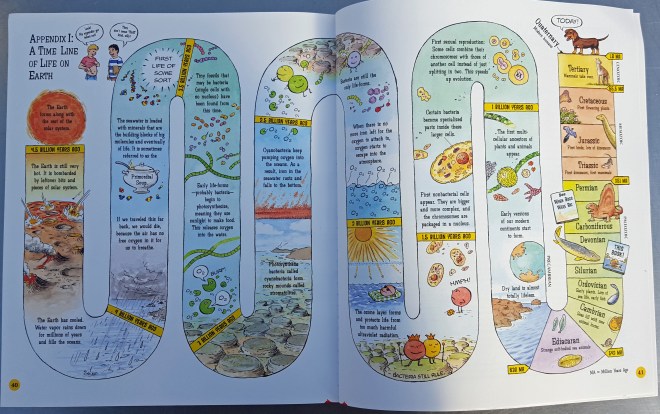 APPENDIX I:
A TIME LINE
OF LIFE ON
EARTH
The Earth
forms along with
the rest of the
solar system.
4.5 BILLION YEARS AGO
The Earth is still very
hot. It is bombarded
by leftover bits and
pieces of solar system.
The Earth has cooled.
Water vapor rains down
for millions of years
and fills the oceans.
4 BILLION YEARS AGO
If we traveled this far
back, we would die,
because the air has
no free oxygen in it for
us to breathe.
Primordial
Soup
The seawater is loaded
with minerals that are
the building blocks of big
molecules and eventually
of life. It is sometimes
referred to as the
FIRST
LIFE OF
SOME
SORT
3.5 BILLION YEARS AGO
Tiny fossils that
may be bacteria
(single cells with
no nucleus) have
been found from
this time.
Early life-forms
—probably bacteria—
begin to
photosynthesize,
meaning they use
sunlight to make food.
This releases oxygen
into the water.
3 BILLION YEARS AGO
Photosynthetic
bacteria called
cyanobacteria form
rocky mounds called
stromatolites.
Cyanobacteria keep
pumping oxygen into
the oceans. As a
result, iron in the
seawater rusts and
falls to the bottom.
2.5 BILLION YEARS AGO
Bacteria are still the
only life-forms.
When there is no
more iron left for the
oxygen to attack in,
oxygen starts to
escape into the
atmosphere.
2 BILLION YEARS AGO
The ozone layer forms
and protects life from
too much harmful
ultraviolet radiation.
BACTERIA STILL RULE!
HMPH!
First nonbacterial cells
appear. They are bigger
and more complex, and
the chromosomes are
packaged in a nucleus.
1.5 BILLION YEARS AGO
Certain bacteria
become specialized
parts inside these
larger cells.
First sexual reproduction:
Some cells combine their
chromosomes with those of
another cell instead of just
splitting in two. This speeds
up evolution.
1 BILLION YEARS AGO
The first multi-
cellular ancestors of
plants and animals
appear.
Early versions of
our modern
continents start
to form.
Dry land is almost
totally lifeless.
PRECAMBRIAN
Ediacaran
Strange soft-bodied sea animals
Cambrian
Ordovician
Silurian
Devonian
THIS
BOOK!
Carboniferous
Permian
Triassic
Jurassic
Cretaceous
Tertiary
Quaternary
TODAY!
MA = Million Years Ago
40
41